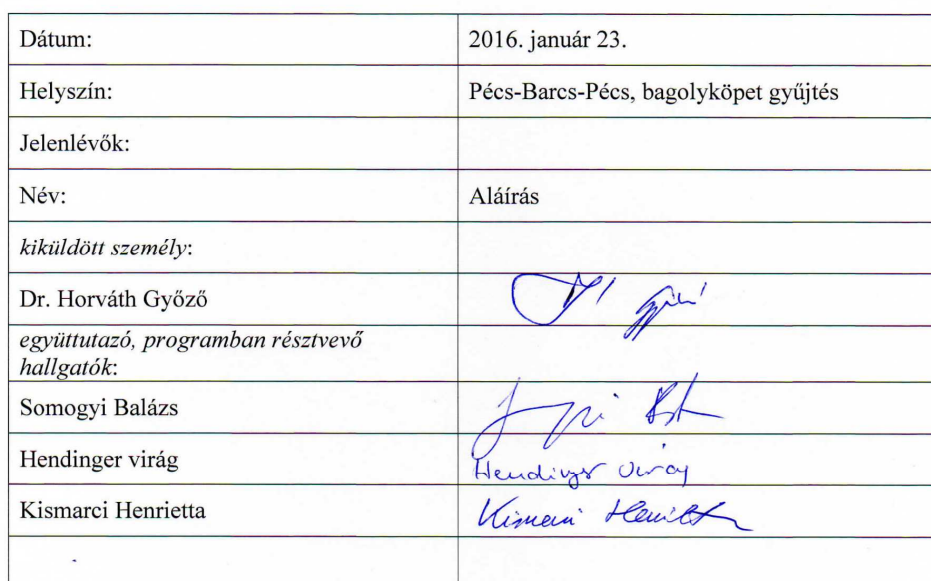 Dátum: 2016. január 23.
Helyszín: Pécs-Barcs-Pécs, bagolyköpet gyűjtés
Jelenlévők:
Név: Aláírás
kiküldött személy:
Dr. Horváth Győző
együttutazó, programban résztvevő
hallgatók:
Somogyi Balázs
Hendinger virág Hendinger Virág
Kismarci Henrietta Kismarci